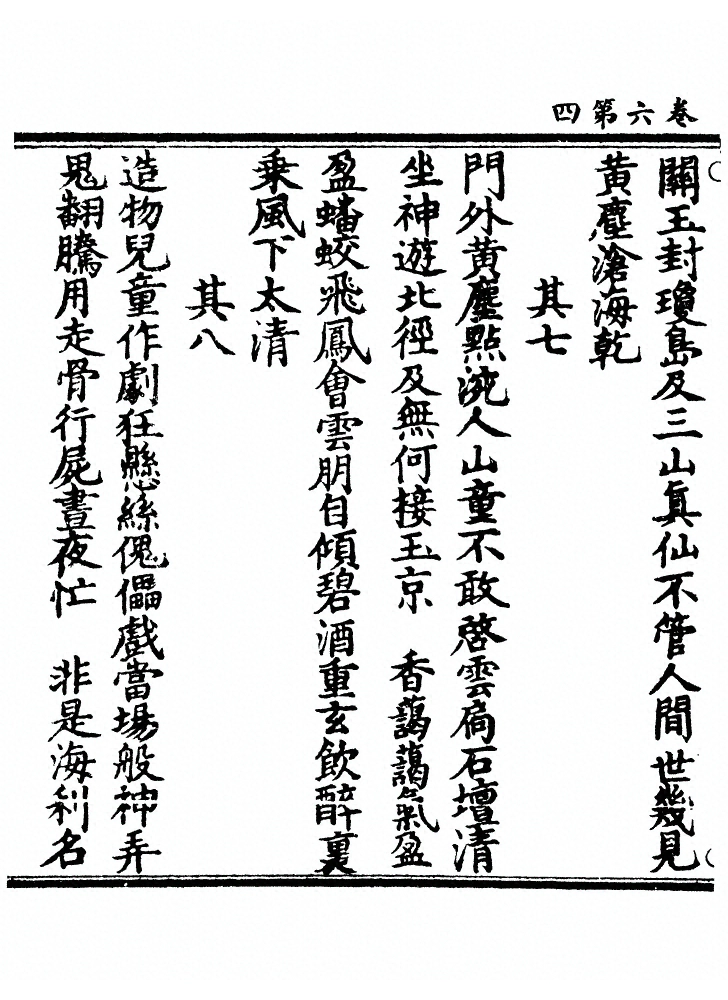 卷六第四
關玉封瓊島及三山真仙不管人間世幾見
黃塵滄海乾
其七
門外黃塵點涴人山童不敢啓雲扃石壇清
坐神遊北徑及無何接玉京　香藹藹氣盈
盈蟠蛟飛鳳會雲朋自傾碧酒重玄飲醉裏
乗風下太清
其八
造物兒童作劇狂懸絲傀儡戲當場般神弄
鬼翻騰用走骨行屍晝夜忙　非是海利名